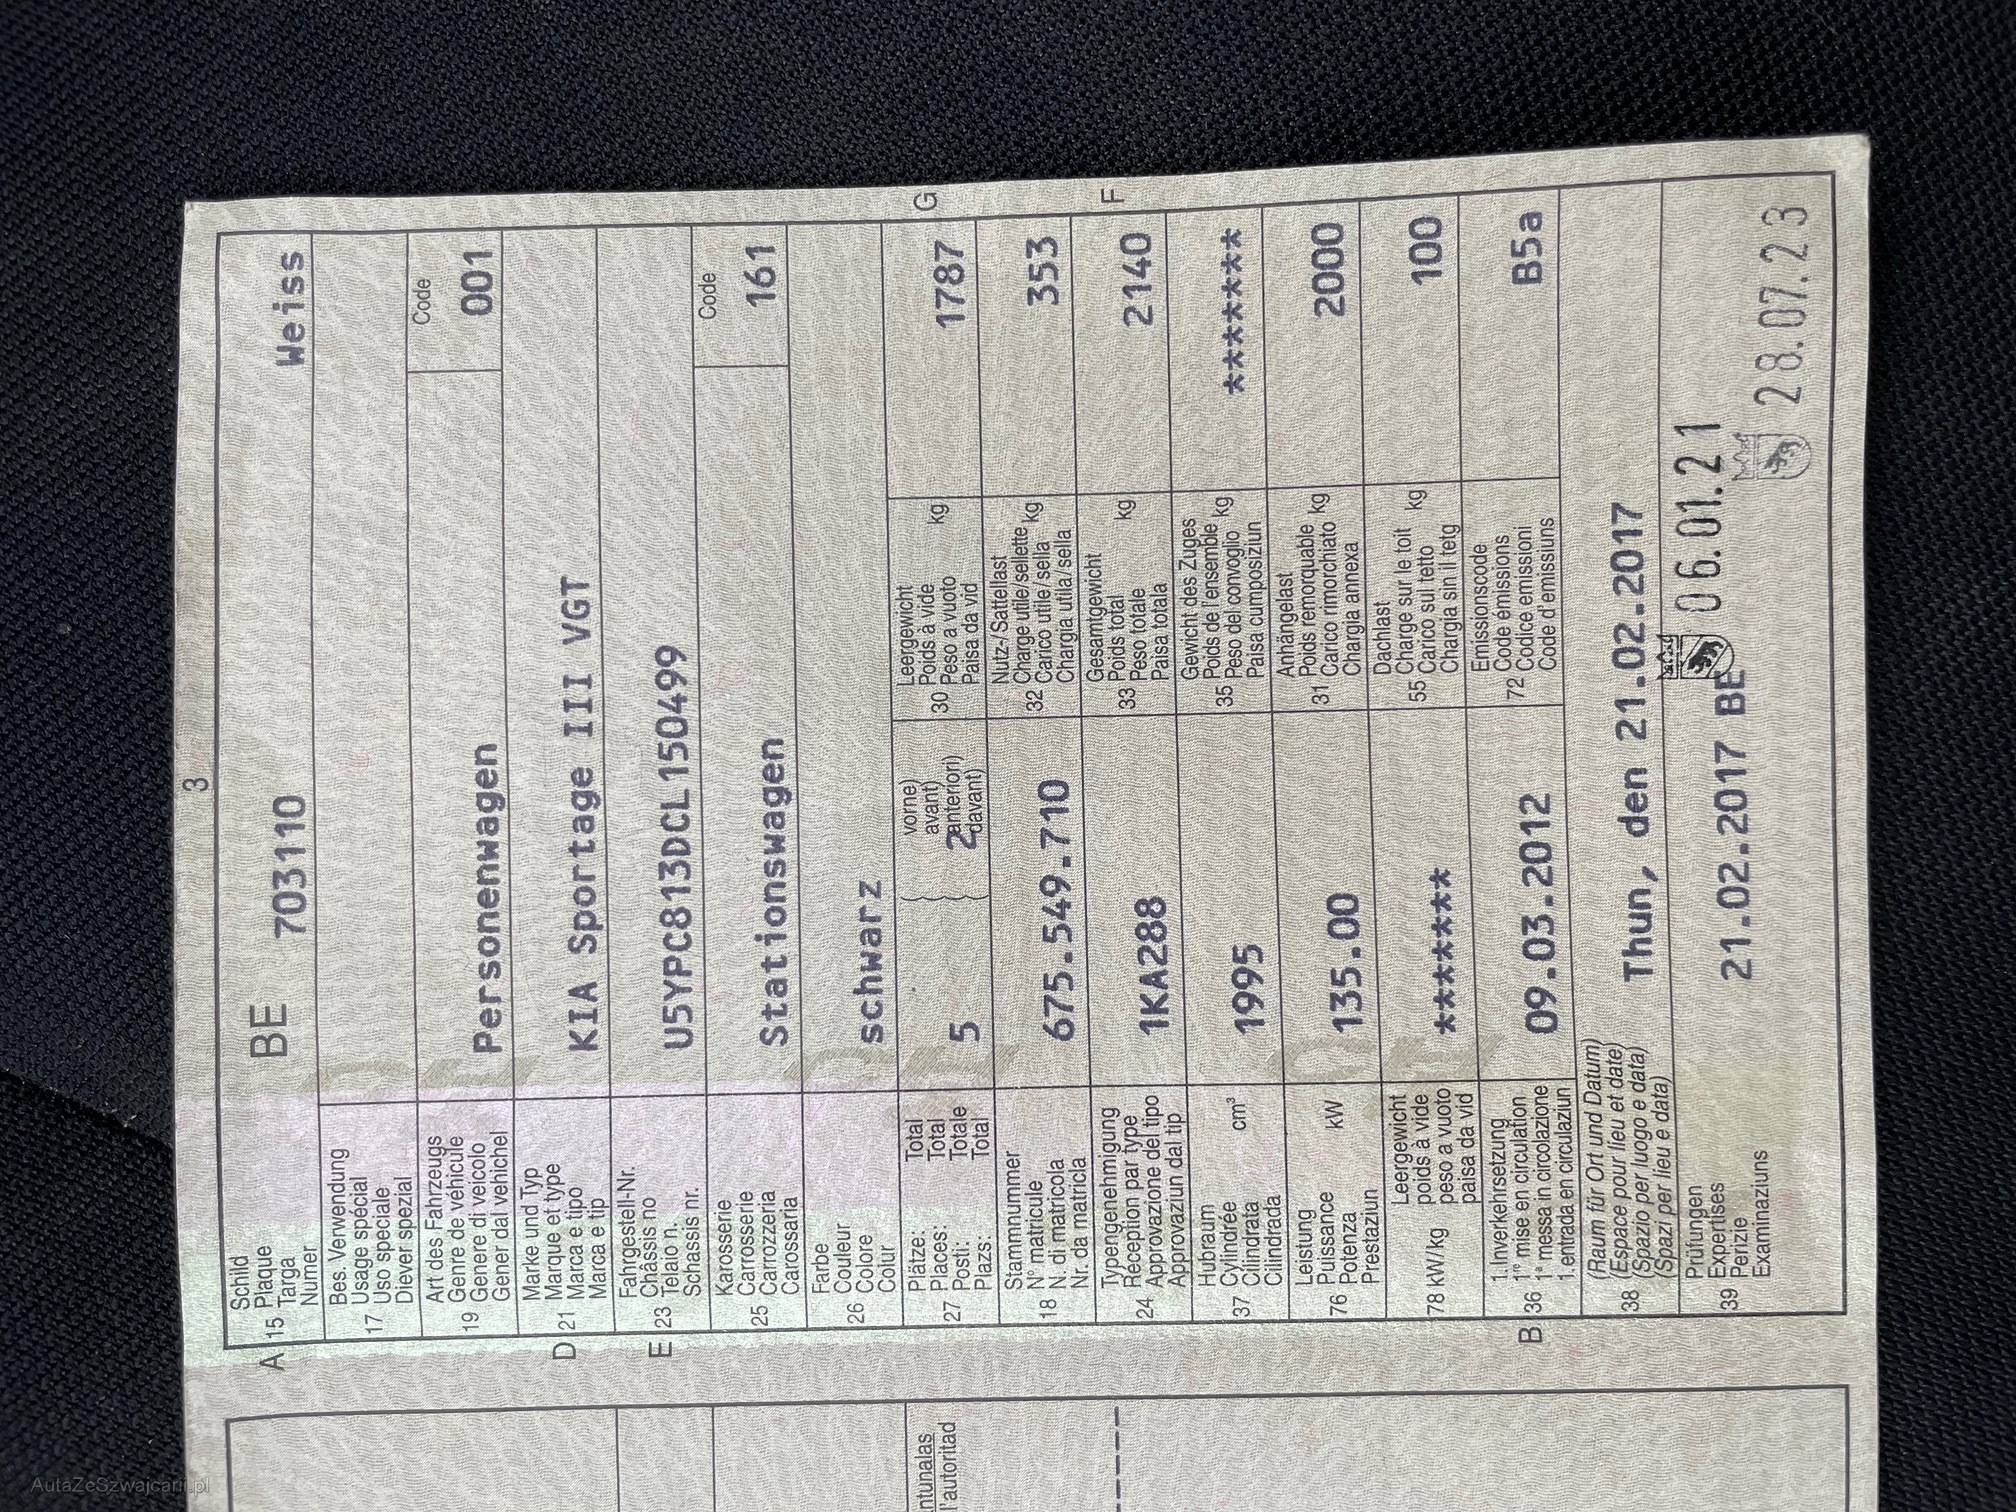 3
Schild
Plaque
A 15 Targa
Numer
BE 703110 Weiss
Bes. Verwendung
Usage spécial
17 Uso speciale
Diever spezial
Art des Fahrzeugs
Genre de véhicule
19 Genere di veicolo
Gener dal vehichel
Personenwagen
Code
001
Marke und Typ
Marque et type
D 21 Marca e tipo
Marca e tip
KIA Sportage III VGT
Fahrgestell-Nr.
Châssis no
E 23 Telaio n.
Schassis nr.
U5YPC813DCL150499
Karosserie
Carrosserie
25 Carrozzeria
Carossaria
Stationswagen
Code
161
Farbe
Couleur
26 Colore
Colur
schwarz
Plätze: Total
Places: Total
27 Posti: Totale
Plazs: Total
5
vorne)
avant)
2 anteriori)
davant)
Leergewicht
Poids à vide
30 Peso a vuoto kg
Paisa da vid
1787 G
Stammnummer
N° matricule
18 N. di matricola
Nr. da matricla
675.549.710
Nutz-/Sattellast
Charge utile/sellette
32 Carico utile/sella kg
Chargia utila/sella
353
Typengenehmigung
Réception par type
24 Approvazione del tipo
Approvaziun dal tip
1KA288
Gesamtgewicht
Poids total
33 Peso totale kg
Paisa totala
2140 F
Hubraum
Cylindrée
37 Cilindrata cm³
Cilindrada
1995
Gewicht des Zuges
Poids de l'ensemble
35 Peso del convoglio kg
Paisa cumposiziun
*******
Leistung
Puissance
76 Potenza kW
Prestaziun
135.00
Anhängelast
Poids remorquable
31 Carico rimorchiato kg
Chargia annexa
2000
Leergewicht
poids à vide
78 kW/kg peso a vuoto
paisa da vid
*******
Dachlast
55 Charge sur le toit kg
Carico sul tetto
Chargia sin il tetg
100
1. Inverkehrsetzung
1re mise en circulation
B 36 1a messa in circolazione
1. entrada en circulaziun
09.03.2012
Emissionscode
72 Code émissions
Codice emissioni
Code d'emissiuns
B5a
(Raum für Ort und Datum)
(Espace pour lieu et date)
38 (Spazio per luogo e data)
(Spazi per lieu e data)
Thun, den 21.02.2017
Prüfungen
Expertises
39 Perizie
Examinaziuns
21.02.2017 BE
06.01.21
28.07.23
ntunalas
l'autoritad
AutaZeSzwajcarii.pl